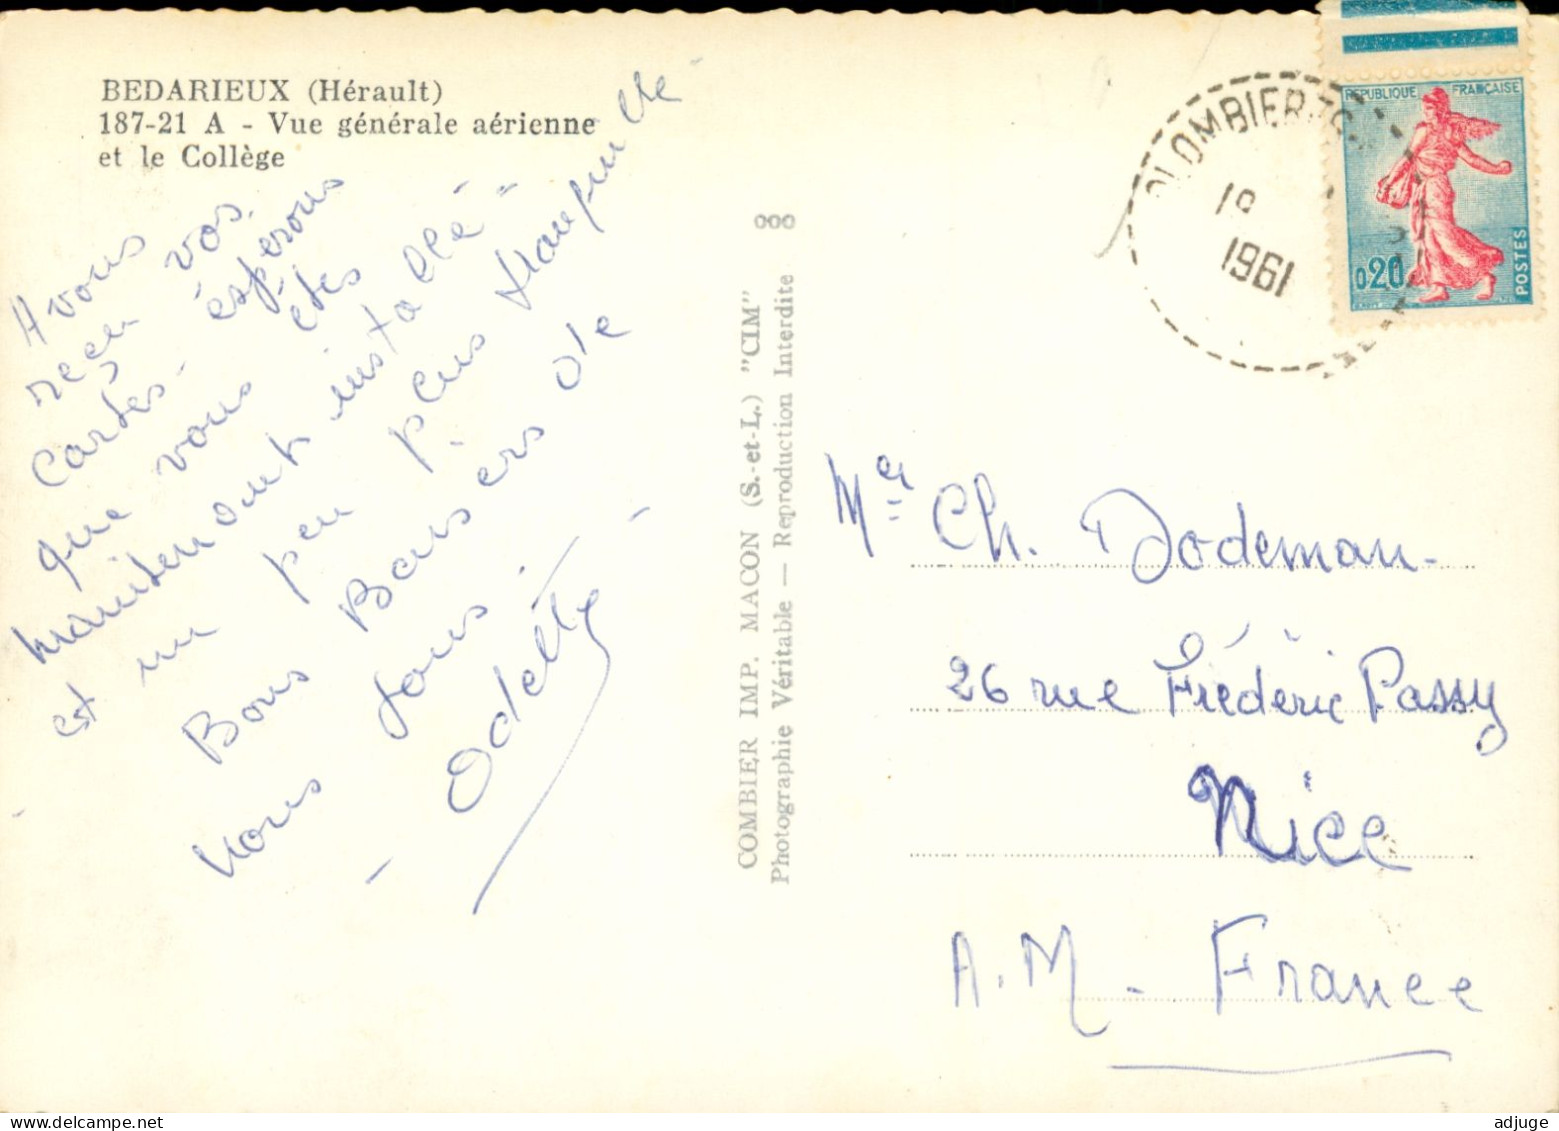 BEDARIEUX (Hérault)
187-21 A - Vue générale aérienne
et le Collège
Avons
reçu vos
Cartes - espérons
que vous êtes
maintenant installé"
est un peu plus tranquille
Bons Baisers de
vous tous.
- Odette -
COMBIER IMP. MACON (S.-et-L.) "CIM"
Photographie Véritable — Reproduction Interdite
REPUBLIQUE FRANÇAISE
0,20
POSTES
1961
Mer Ch. Dodeman-
26 rue Frédéric Passy
Nice
A.M - France
adjuge